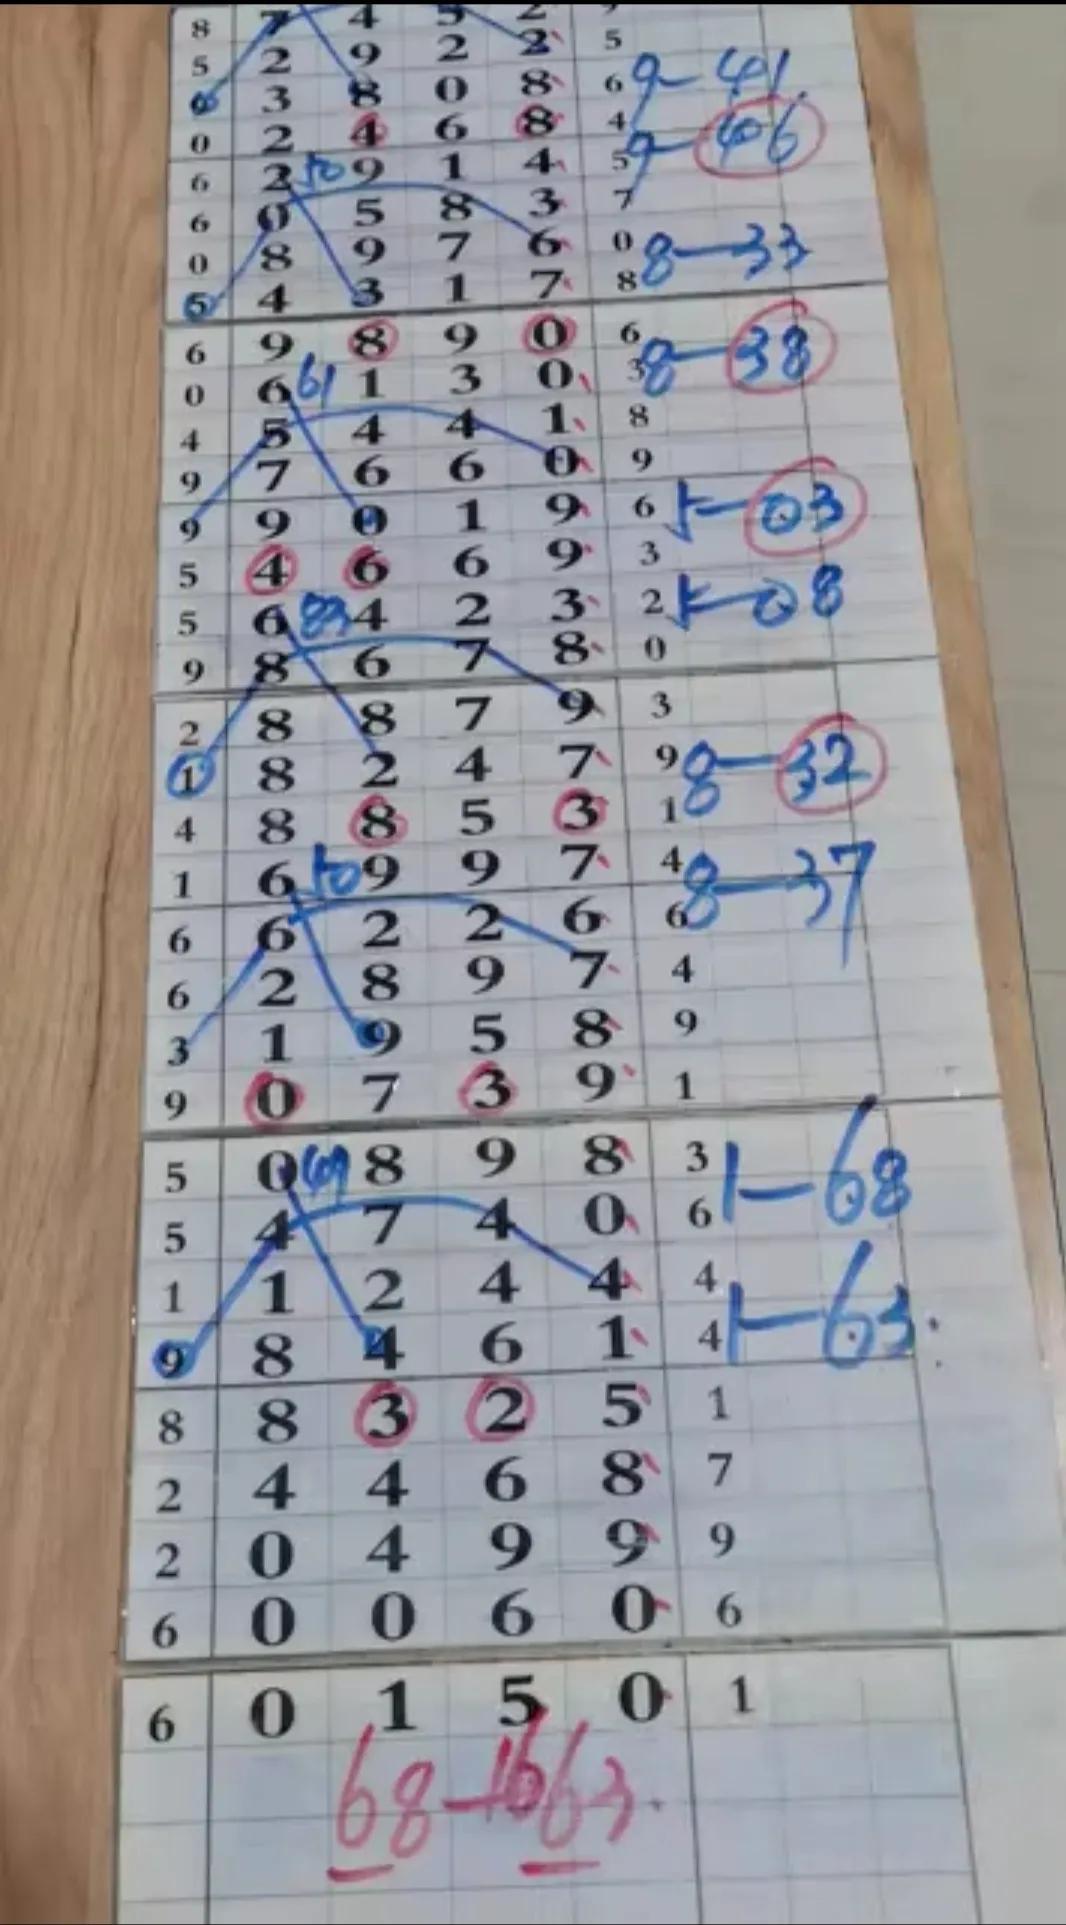 8 7 4 5 2
5 2 9 2 2 5
3 8 0 8 6 9-41
0 2 4 6 8 4
6 2 50 9 1 4 5 9-46
6 0 5 8 3 7
0 8 9 7 6 0 8-33
5 4 3 1 7 8
6 9 8 9 0 6
0 6 61 1 3 0 3 8-38
4 5 4 4 1 8
9 7 6 6 0 9
9 9 0 1 9 6 5-03
5 4 6 6 9 3
5 6 83 4 2 3 2 5-08
9 8 6 7 8 0
2 8 8 7 9 3
1 8 2 4 7 9 8-32
4 8 8 5 3 1
1 6 50 9 9 7 4 8-37
6 6 2 2 6 6
6 2 8 9 7 4
3 1 9 5 8 9
9 0 7 3 9 1
5 0 49 8 9 8 3 1-68
5 4 7 4 0 6
1 1 2 4 4 4
9 8 4 6 1 4 1-63.
8 8 3 2 5 1
2 4 4 6 8 7
2 0 4 9 9 9
6 0 0 6 0 6
6 0 1 5 0 1
68-1663.